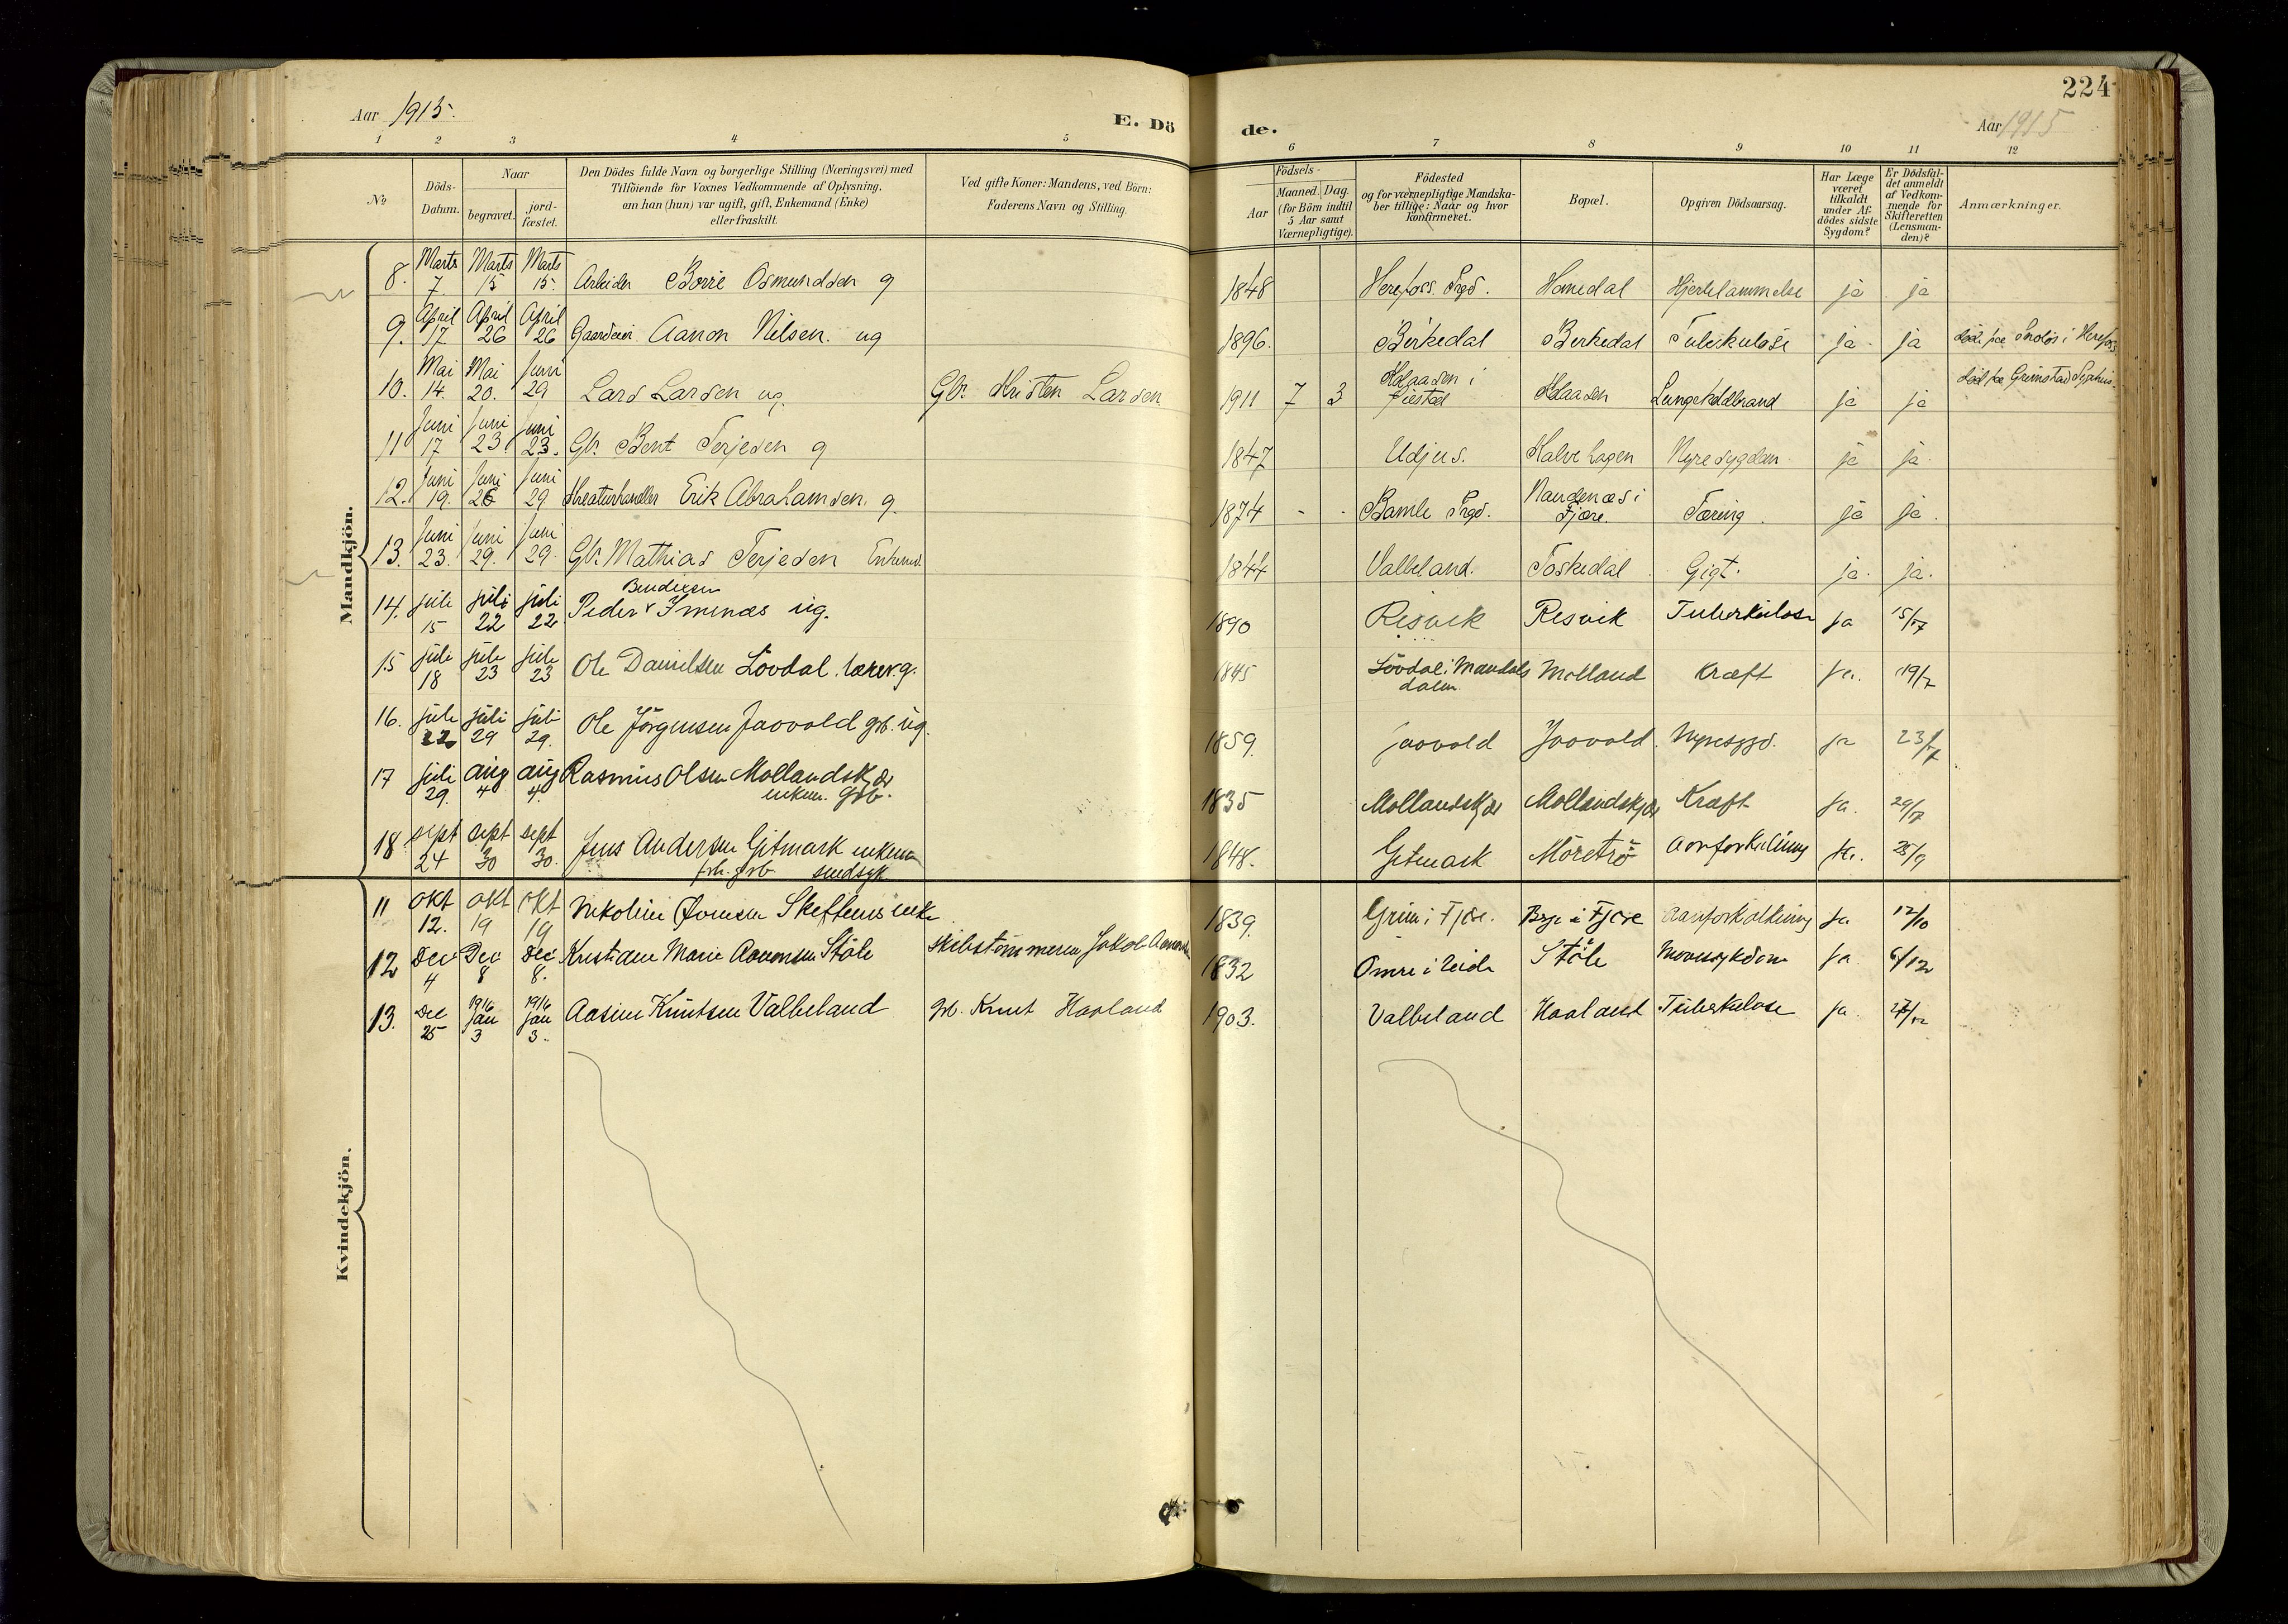 224
Aar 1915.
E. Dö de.
Aar 1915
1 2 3 4 5 6 7 8 9 10 11 12
№
Döds-Datum.
Naar
begravet.
jord-fæstet.
Den Dödes fulde Navn og borgerlige Stilling (Næringsvei) med
Tilföiende for Voxnes Vedkommende af Oplysning,
om han (hun) var ugift, gift, Enkemand (Enke)
eller fraskilt.
Ved gifte Koner: Mandens, ved Börn:
Faderens Navn og Stilling.
Födsels-
Aar
Maaned. Dag.
(for Börn indtil
5 Aar samt
Værnepligtige).
Födested
og for værnepligtige Mandska-
ber tillige: Naar og hvor
konfirmeret.
Bopæl.
Opgiven Dödsaarsag.
Har Læge
været
tilkaldt
under Af-
dödes sidste
Sygdom?
Er Dödsfal-
det anmeldt
af Vedkom-
mende for
Skifteretten
(Lensman-
den)?
Anmærkninger.
Mandkjön.
8. Marts 7. Marts 15 Marts 15. Arbeider Børre Osmundsen g 1848 Herefoss Prgd. Hanedal Hjertelammelse ja ja
9. April 17 April 26 April 26 Aanon Nilsen. ug 1896. Birkedal Birkedal Tuberkuløse ja ja
10. Mai 14. Mai 20. Juni 29 Lars Larsen ug. Gbr. Kristen Larsen 1911 7 3 i Lungekoldbrand ja ja død paa Grimstad Sygehus.
11 Juni 17 Juni 23. Juni 23. Gbr. Bent Terjesen g 1847 Udjus. Kalvehagen Nyresygdom ja ja
12. Juni 19. Juni 26 Juni 29 Kreaturhandler Erik Abrahamsen g. 1874 - - Bamle Prgd. i Fjære. Tæring. ja ja.
13. Juni 23. Juni 29. Juni 29. Gbr. Mathias Terjesen Enkemd. 1844 Valbeland. Toskedal Gigt. ja. ja.
14. juli 15 juli 22 juli 22 Peder Bendixen Imenæs ug. 1890 Resvik Resvik Tuberkulose ja 15/7
15 juli 18 juli 23 juli 23 Ole Danielsen Lövdal. lærer g. 1845 Lövdal i Mandals dalen Molland Kræft ja. 19/7
16. juli 22 juli 29 juli 29. Ole Jörgensen Jaavold grb. ug. 1859 Jaavold Jaavold. Nyresygd. ja 23/7
17 juli 29. aug 4 aug 4. Rasmus Olsen Mollandskjær enkem. grb. 1835 Mollandskjær Mollandskjær Kræft ja. 29/7
18 sept 24 sept 30 sept 30. Jens Andersen Gitmark enkem frh. grb sindsyk 1848. Gitmark Möretrö Aareforkalkning ja. 25/9
Kvindekjön.
11 okt 12. okt 19 okt 19 Nikoline enke 1839. Grim i Fjære. i Fjære Aareforkalkning ja 12/10
12 Dec 4 Dec 8 Dec 8. Kristiane Marie Aanonsen Støle skibstømmerm. Jakob 1832 Omre i Eide Støle Mavesykdom ja 6/12
13. Dec 25 1916 jan 3 1916 jan 3. Aasine Knutsen Valbeland grb. Knut Haaland 1903. Valbeland Haaland Tuberkulose ja. 27/12